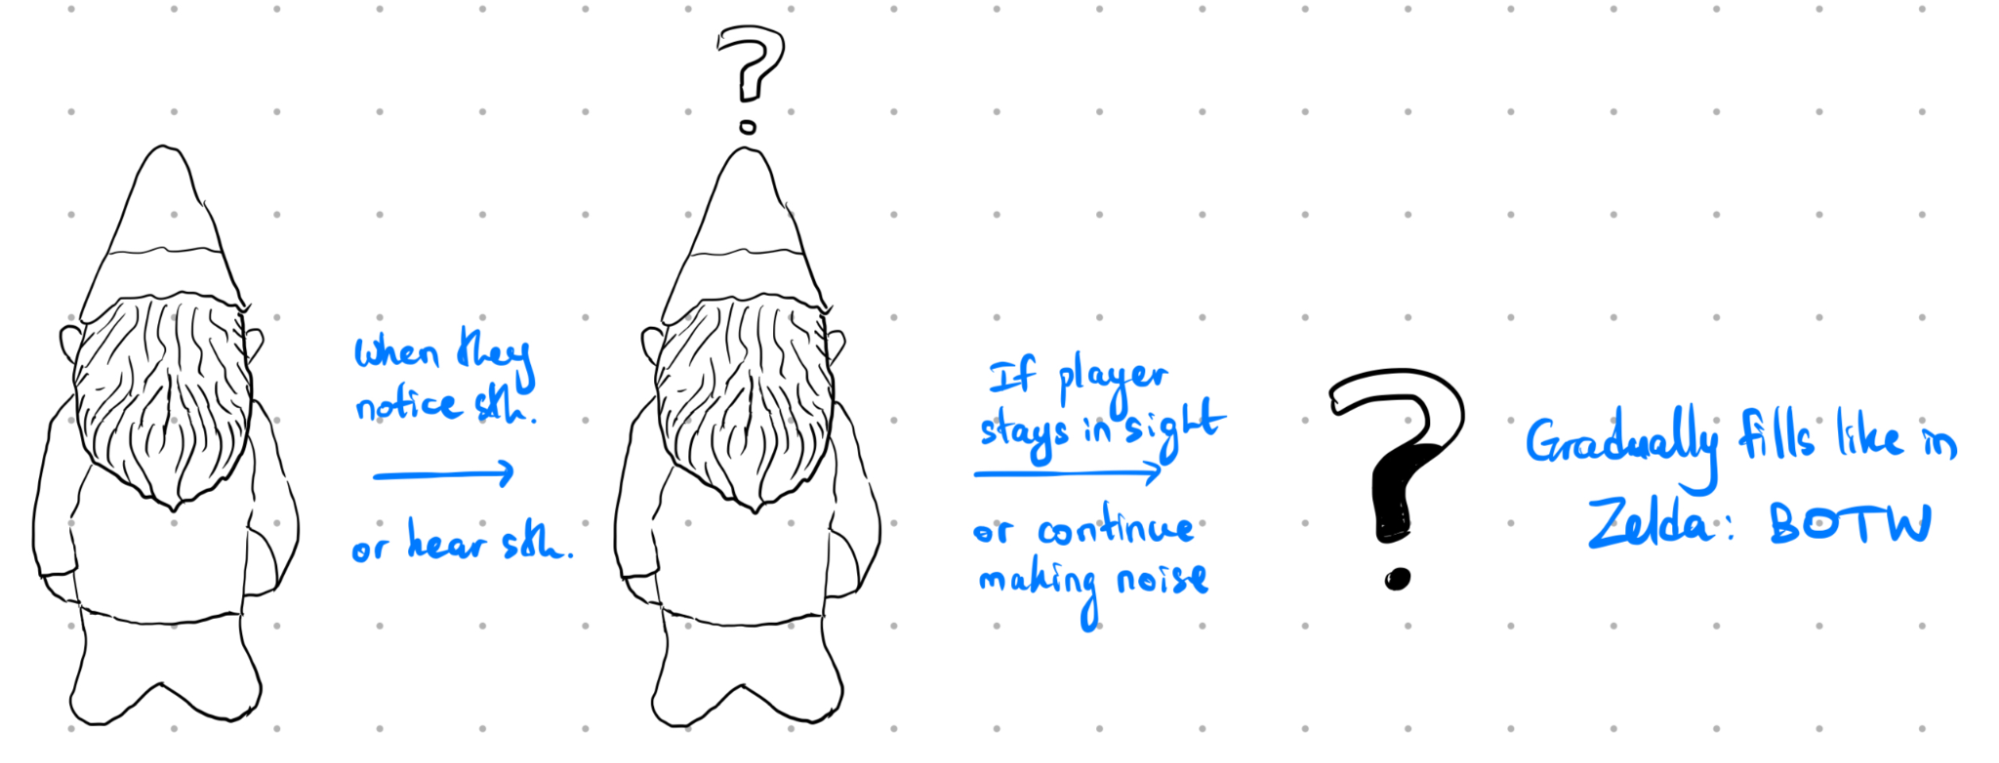 ?
When they
notice sth.
or hear sth.
If player
stays in sight
or continue
making noise
?
Gradually fills like in
Zelda: BOTW